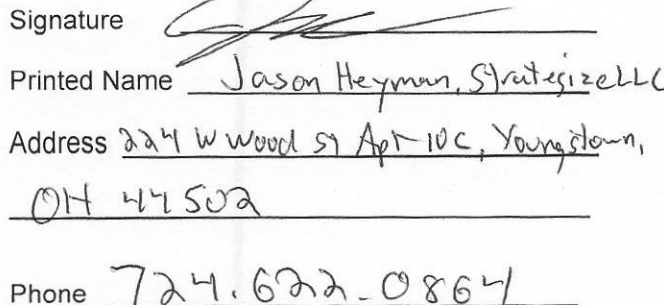 Signature
Printed Name Jason Heyman, Strategize LLC
Address 224 W Wood St Apt 10C, Youngstown,
OH 44502
Phone 724.622-0864